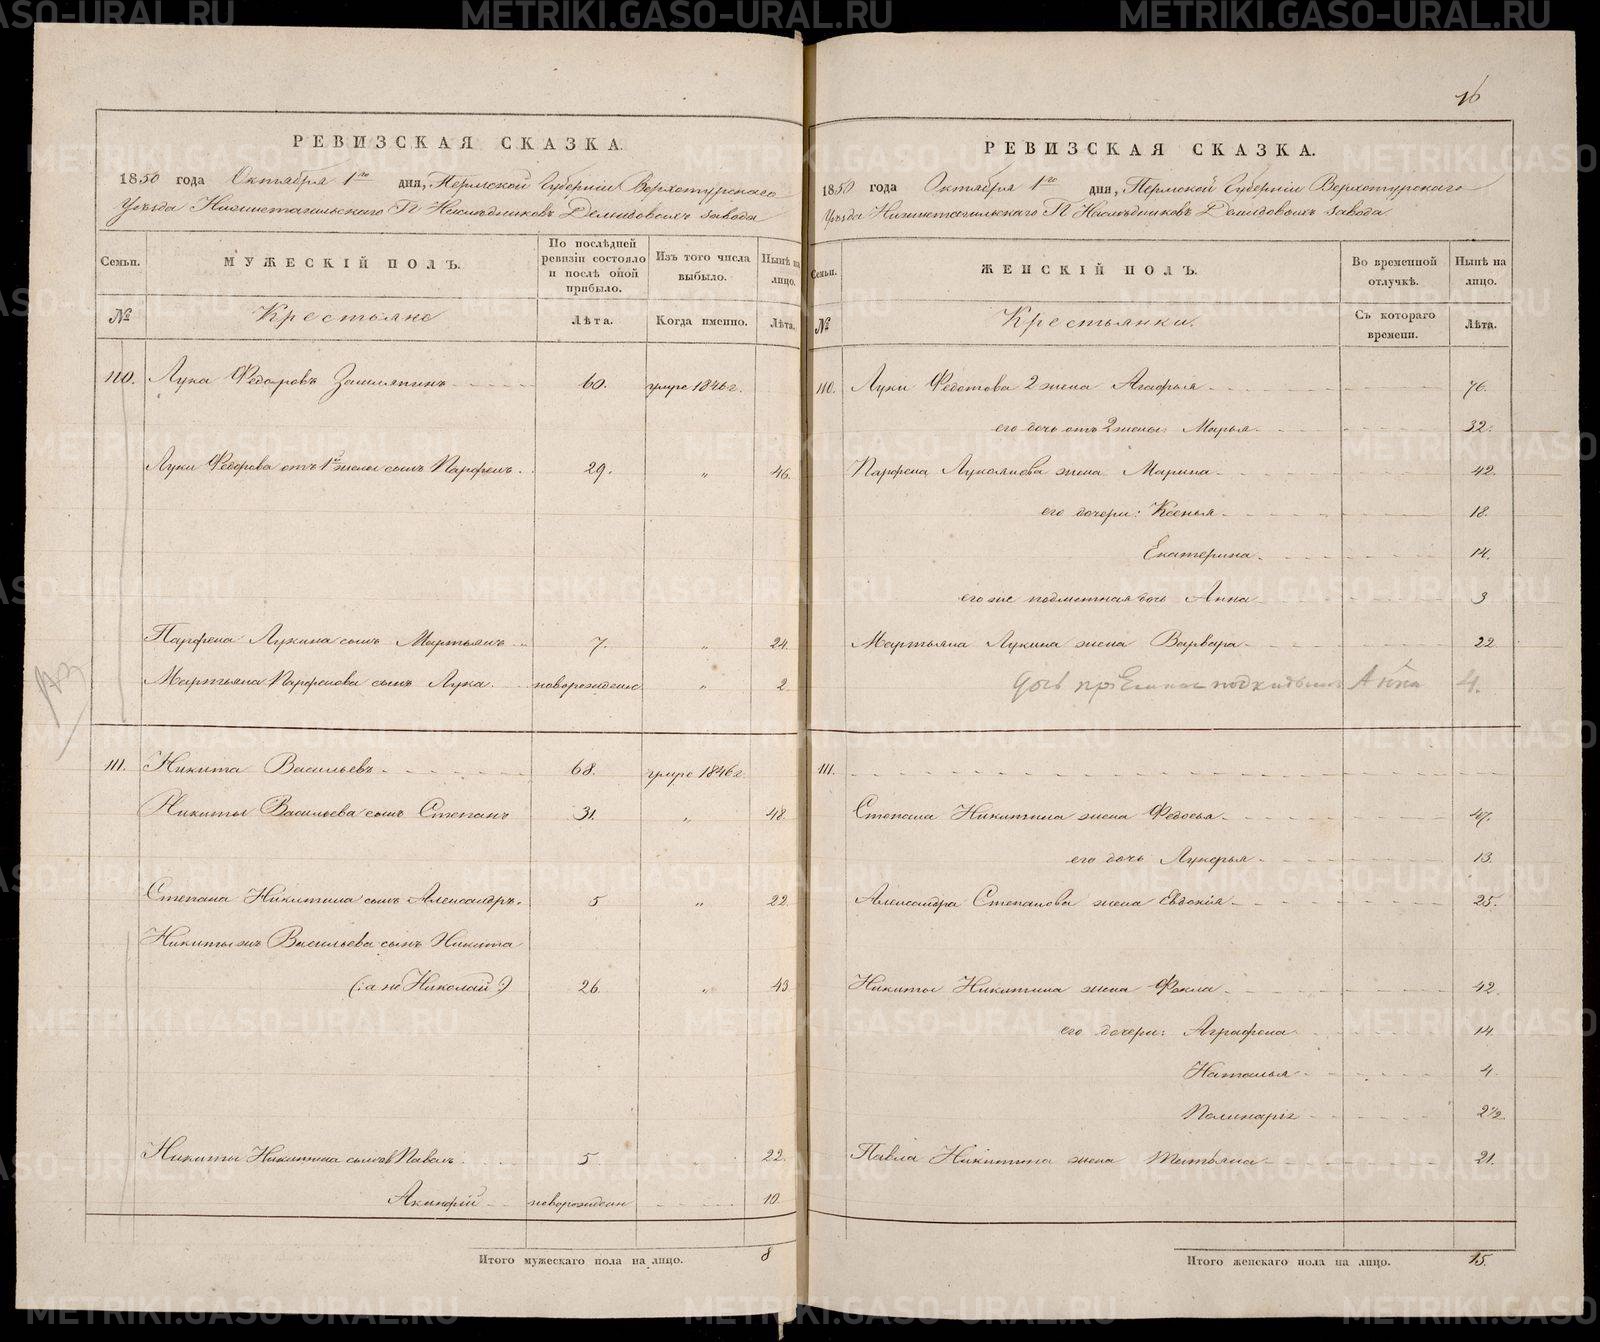 16
РЕВИЗСКАЯ СКАЗКА.
1850 года Октября 1го дня, Пермской Губерніи Верхотурскаго
Уѣзда Нижнетагильскаго Г Наслѣдниковъ Демидовыхъ завода
Семьи.
МУЖЕСКІЙ ПОЛЪ.
По послѣдней ревизіи состояло и послѣ оной прибыло.
Изъ того числа выбыло.
Нынѣ на лицо.
№
Крестьяне
Лѣта.
Когда именно.
Лѣта.
110. Лука Федоровъ 60. умре 1846 г.
Луки Федорова отъ 1й жены сынъ Парфенъ 29. " 46.
Парфена Лукина сынъ Мартьянъ 7. " 24.
Мартьяна Парфенова сынъ Лука новорожденъ " 2.
111. Никита Васильевъ 68. умре 1846 г.
Никиты Васильева сынъ Степанъ 31. " 48.
Степана Никитина сынъ Александръ 5 " 22.
Никиты жъ Васильева сынъ Никита
(: а не Николай :) 26. " 43
Никиты Никитина сынъ Павелъ 5 22.
Акинфій новорожден 10.
Итого мужескаго пола на лицо. 8
РЕВИЗСКАЯ СКАЗКА.
1850 года Октября 1го дня, Пермской Губерніи Верхотурскаго
Уѣзда Нижнетагильскаго Г Наслѣдниковъ Демидовыхъ завода
Семьи.
ЖЕНСКІЙ ПОЛЪ.
Во временной отлучкѣ.
Нынѣ на лицо.
№
Крестьянки.
Съ котораго времени.
Лѣта.
110. Луки Федотова 2 жена Агафья 76.
его дочь отъ 2 жены Марья 32.
Парфена Лукоянова жена Марина 42.
его дочери: Ксенья 18.
Екатерина 14.
его же подметная дочь Анна 3
Мартьяна Лукина жена Варвара 22
дочь подкидыш Анна 4.
111.
Степана Никитина жена Федосья 47.
его дочь Лукерья 13.
Александра Степанова жена Евдокія 25.
Никиты Никитина жена Фекла 42.
его дочери: Аграфена 14.
Наталья 4.
2 1/2
Павла Никитина жена Татьяна 21.
Итого женскаго пола на лицо. 15.
METRIKI.GASO-URAL.RU